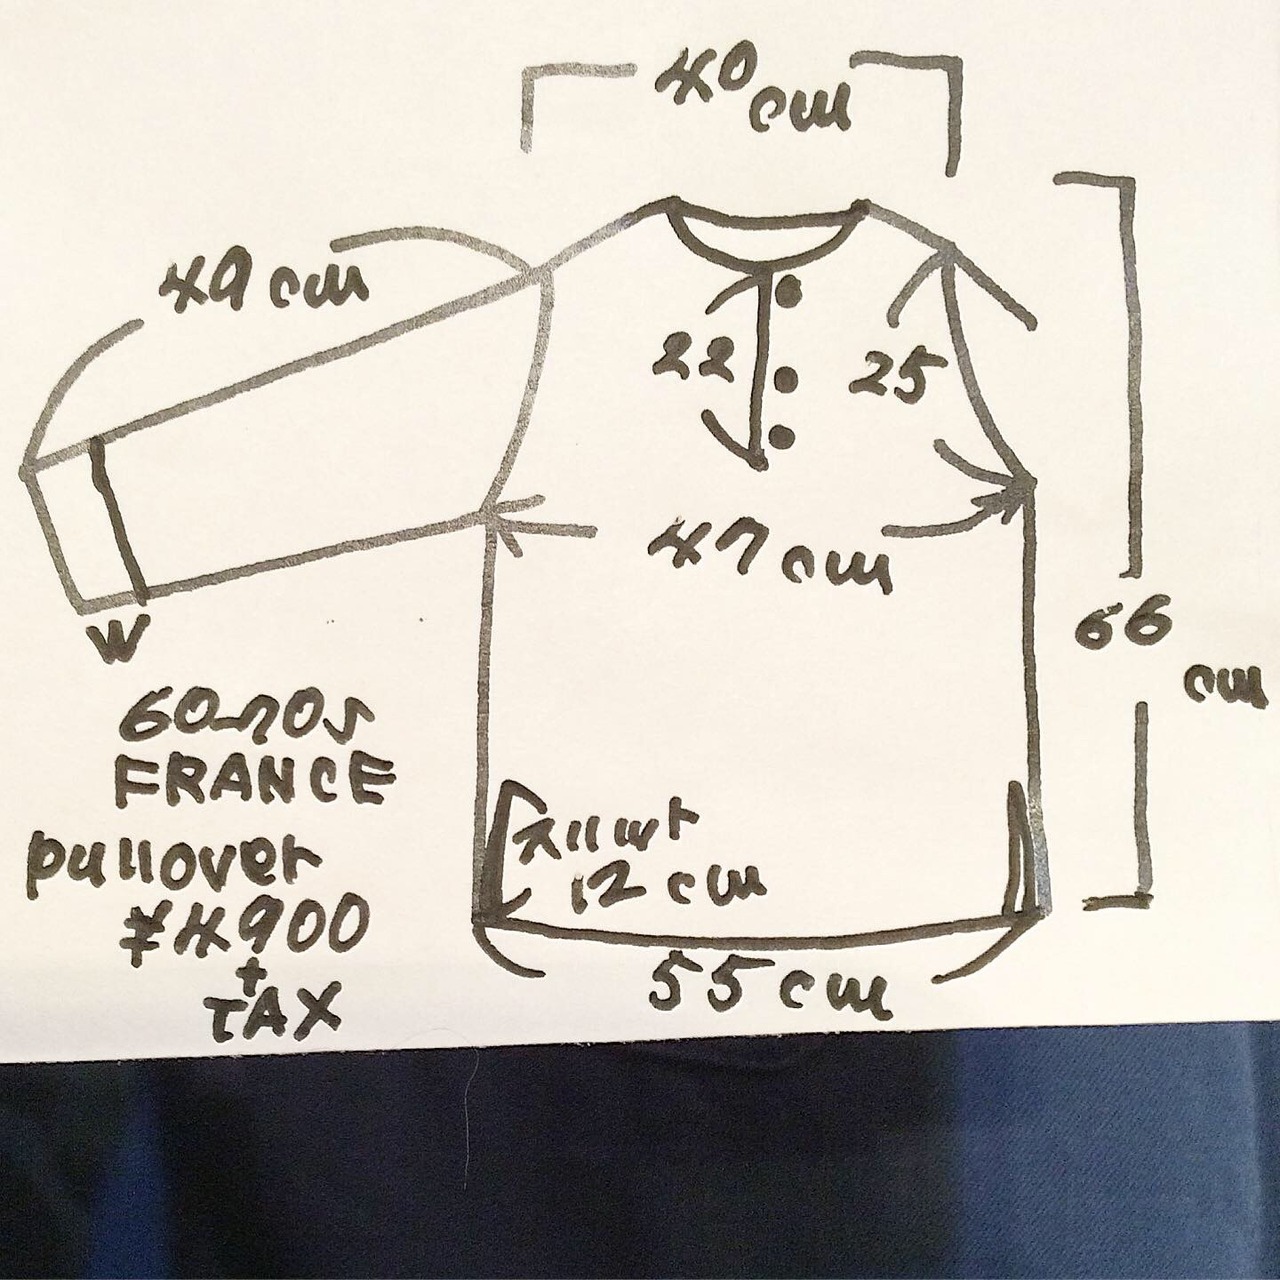 40 cm
49 cm
22
25
47 cm
66 cm
W
60-70s
FRANCE
pullover
¥4900
+
TAX
スリット
12 cm
55 cm